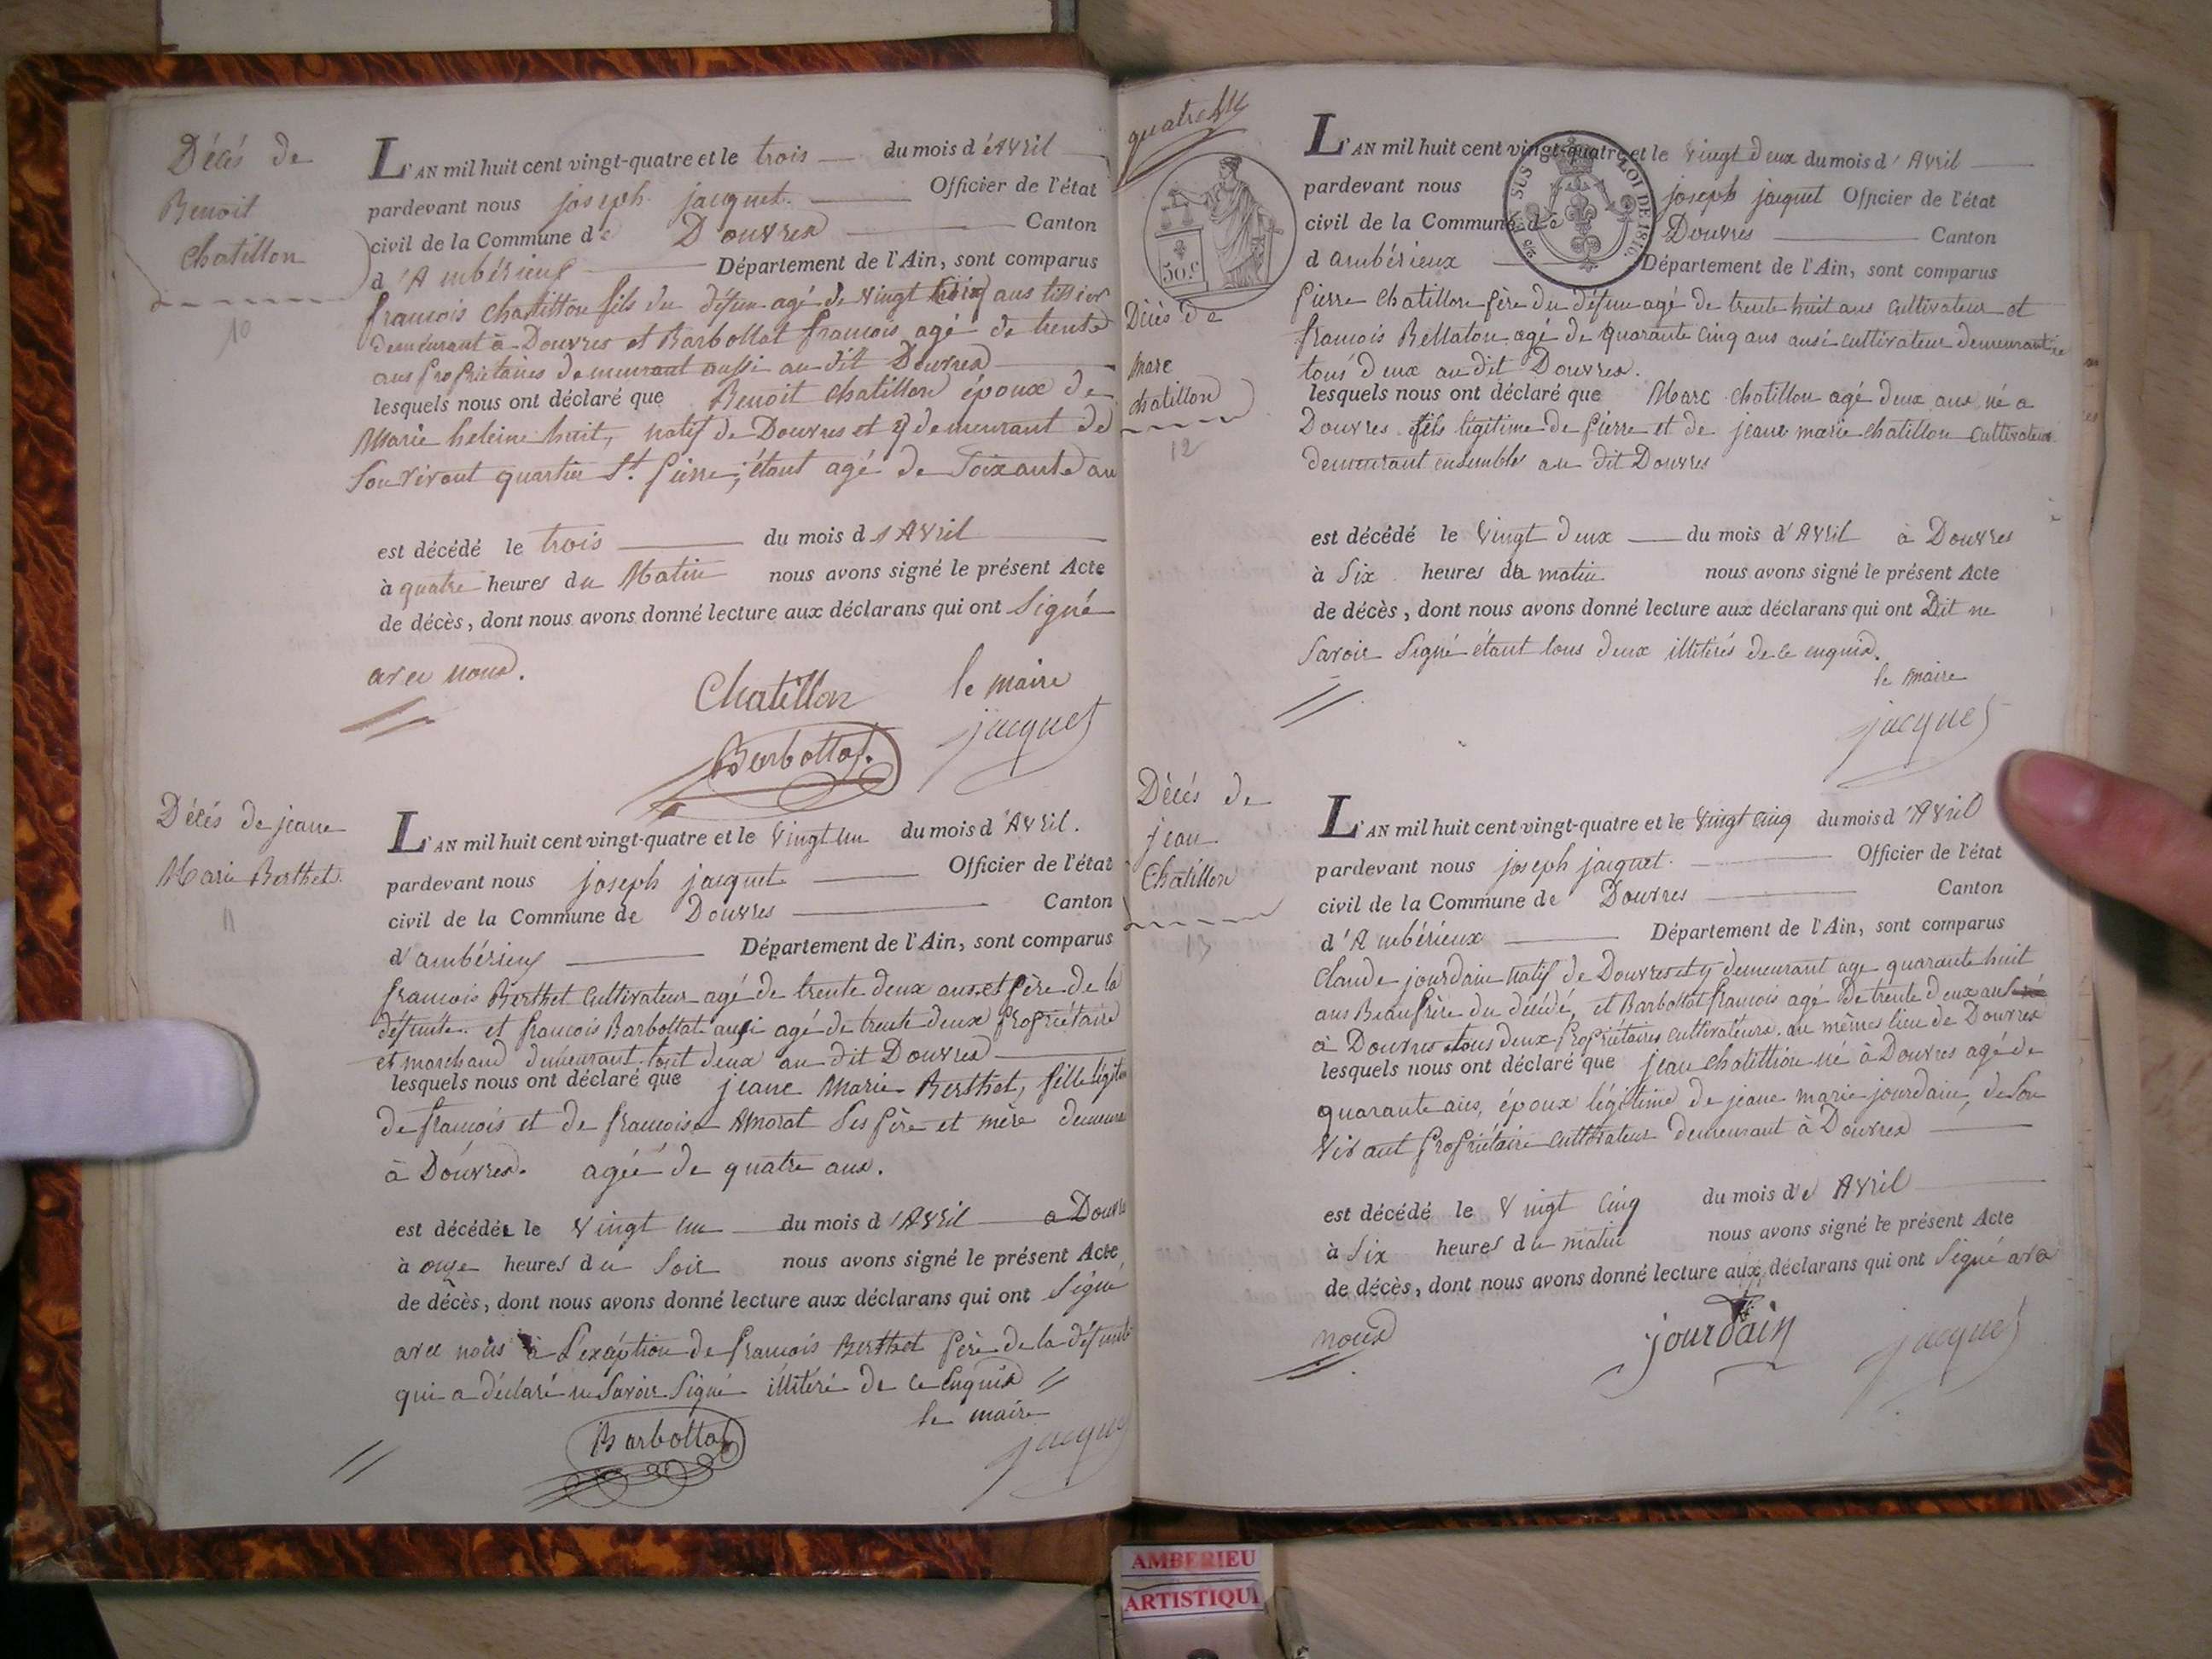 Décés de
Benoit
Chatillon
10
L'AN mil huit cent vingt-quatre et le trois du mois d'Avril
pardevant nous joseph jacquet Officier de l'état
civil de la Commune de Douvres Canton
d'Ambérieux Département de l'Ain, sont comparus
francois chatillon fils du défun agé de vingt ans
demeurant à Douvres et Barbollat francois agé de trente
ans proprietaires demeurant aussi au dit Douvres
lesquels nous ont déclaré que Benoit chatillon époux de
Marie heleine huit, natif de Douvres et y demeurant de
Son vivant quartier St. pierre; étant agé de Soixante an
est décédé le trois du mois d'Avril
à quatre heures du Matin nous avons signé le présent Acte
de décès, dont nous avons donné lecture aux déclarans qui ont Signé
avec nous.
Chatillon le maire
jacquet
Barbollat
Décés de jeane
Marie Berthet
11
L'AN mil huit cent vingt-quatre et le vingt un du mois d'Avril.
pardevant nous joseph jacquet Officier de l'état
civil de la Commune de Douvres Canton
d'ambérieux Département de l'Ain, sont comparus
francois Berthet Cultivateur agé de trente deux ans et père de la
défunte. et francois Barbollat ausi agé de trente deux propriétaire
et marchand demeurant tout deux au dit Douvres
lesquels nous ont déclaré que jeane Marie Berthet, fille légitime
de francois et de francoise Amorat Ses père et mère demeurant
à Douvres. agéé de quatre ans.
est décédée le vingt un du mois d'Avril a Douvres
à onze heures du Soir nous avons signé le présent Acte
de décès, dont nous avons donné lecture aux déclarans qui ont Signé
avec nous à L'exéption de francois Berthet père de la défunte
qui a déclaré ne Savoir Signé illitéré de ce enquis
le maire
jacquet
Barbollat
quatre
50.c
Décés de
Marc
chatillon
12
L'AN mil huit cent vingt-quatre et le vingt deux du mois d'Avril
pardevant nous joseph jacquet Officier de l'état
civil de la Commune de Douvres Canton
d'ambérieux Département de l'Ain, sont comparus
EN SUS LOI DE 1816.
pierre Chatillon père du défun agé de trente huit ans cultivateur et
francois Bellaton agé de quarante cinq ans ausi cultivateur demeurant
tous deux au dit Douvres.
lesquels nous ont déclaré que Marc chatillon agé deux ans né a
Douvres fils légitime de pierre et de jeane marie chatillon Cultivateurs
demeurant ensembles au dit Douvres
est décédé le vingt deux du mois d'Avril à Douvres
à Six heures du matin nous avons signé le présent Acte
de décès, dont nous avons donné lecture aux déclarans qui ont Dit ne
Savoir Signé étant tous deux illitérés de ce enquis.
le maire
jacquet
Décés de
jean
Chatillon
13
L'AN mil huit cent vingt-quatre et le vingt cinq du mois d'Avril
pardevant nous joseph jacquet Officier de l'état
civil de la Commune de Douvres Canton
d'Ambérieux Département de l'Ain, sont comparus
Claude jourdain natif de Douvres et y demeurant age quarante huit
ans Beaufrère du décédé, et Barbollat francois agé de trente deux ans
à Douvres tous deux propriétaires cultivateurs au mêmes lieu de Douvres
lesquels nous ont déclaré que jean chatillion né à Douvres agé de
quarante ans, époux légitime de jeane marie jourdain, de Son
vivant propriétaire cultivateur demeurant à Douvres
est décédé le vingt cinq du mois d'e Avril
à Six heures du matin nous avons signé le présent Acte
de décès, dont nous avons donné lecture aux déclarans qui ont Signé avec
nous
jourdain jacquet
AMBERIEU
ARTISTIQU